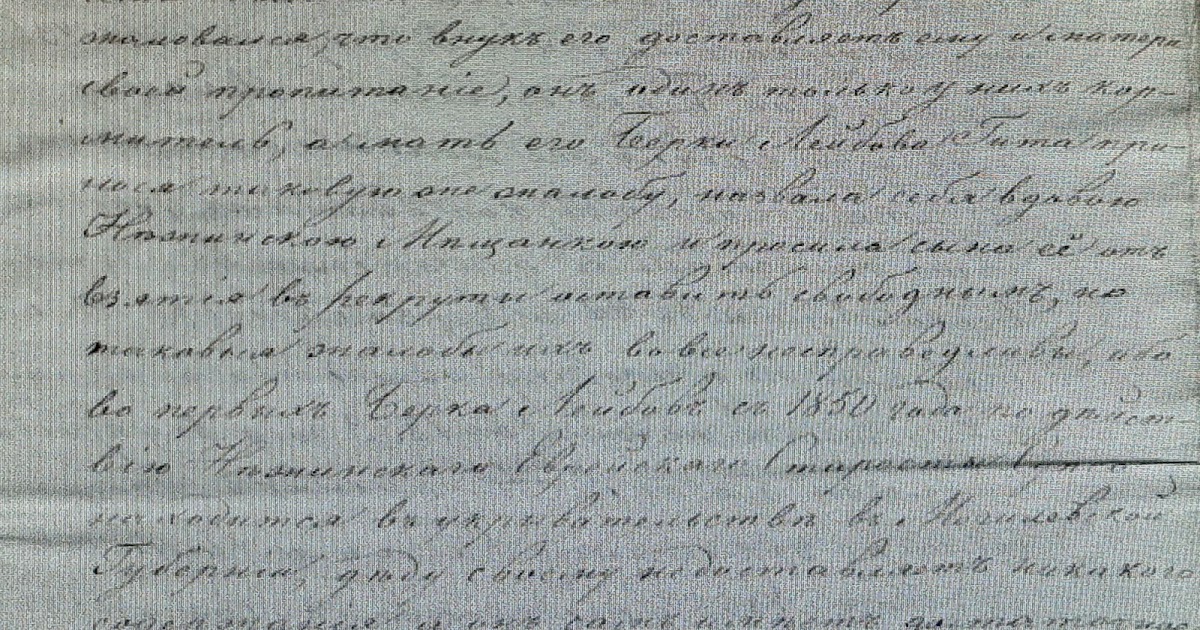 жаловался, что внукъ его доставляетъ ему и матери
своей пропитаніе, онъ одинъ только у нихъ кор-
митель, а мать его Берки Лейбова Гита при-
нося таковую же жалобу, назвала себя вдовою
Нѣжинскою Мѣщанкою и просила сына её отъ
взятія въ рекруты оставить свободнымъ, но
таковыя жалобы ихъ вовсе несправедливы, ибо
во первыхъ Берка Лейбовъ съ 1850 года по дѣйст-
вію Нѣжинскаго Еврейскаго Старосты
находится въ укрывательствѣ въ Могилевской
Губерніи, дѣду своему недоставляетъ никакого
содержанія